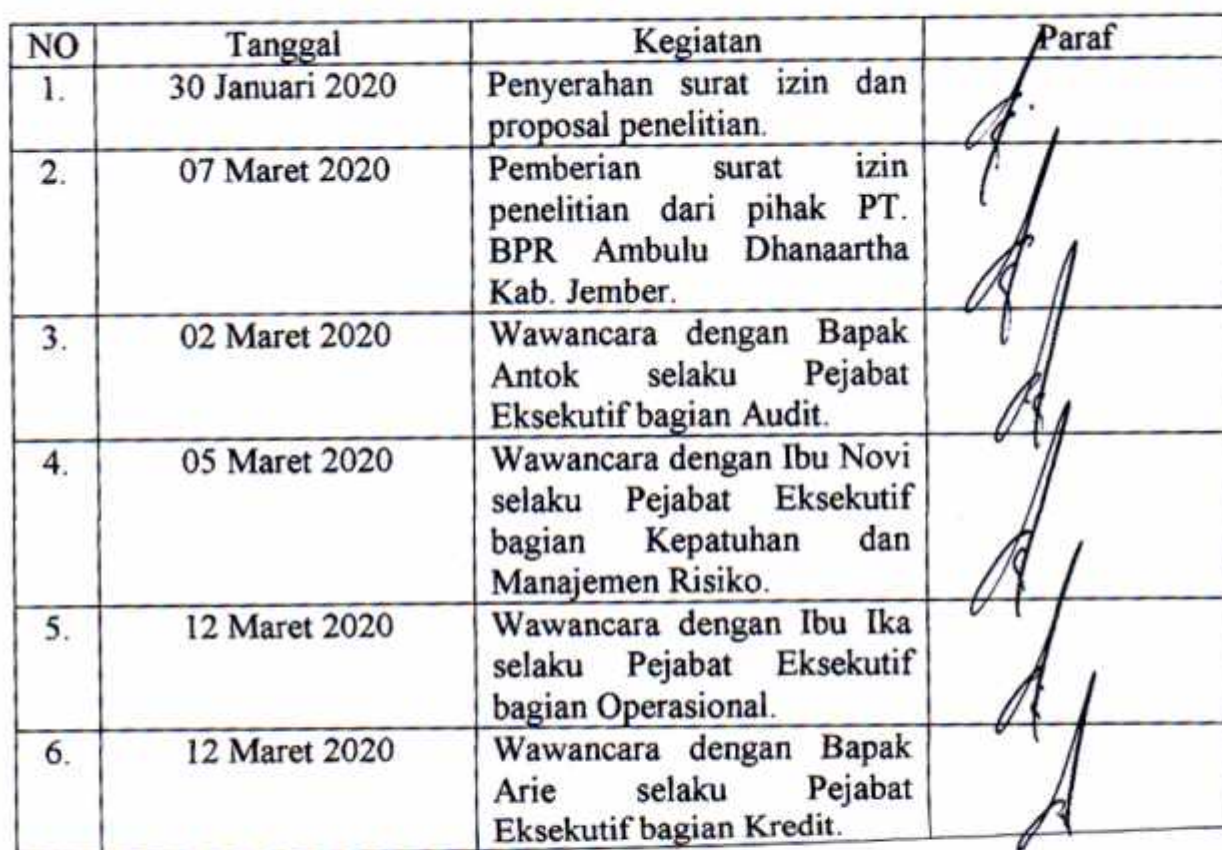 NO Tanggal Kegiatan Paraf
1. 30 Januari 2020 Penyerahan surat izin dan
proposal penelitian.
2. 07 Maret 2020 Pemberian surat izin
penelitian dari pihak PT.
BPR Ambulu Dhanaartha
Kab. Jember.
3. 02 Maret 2020 Wawancara dengan Bapak
Antok selaku Pejabat
Eksekutif bagian Audit.
4. 05 Maret 2020 Wawancara dengan Ibu Novi
selaku Pejabat Eksekutif
bagian Kepatuhan dan
Manajemen Risiko.
5. 12 Maret 2020 Wawancara dengan Ibu Ika
selaku Pejabat Eksekutif
bagian Operasional.
6. 12 Maret 2020 Wawancara dengan Bapak
Arie selaku Pejabat
Eksekutif bagian Kredit.